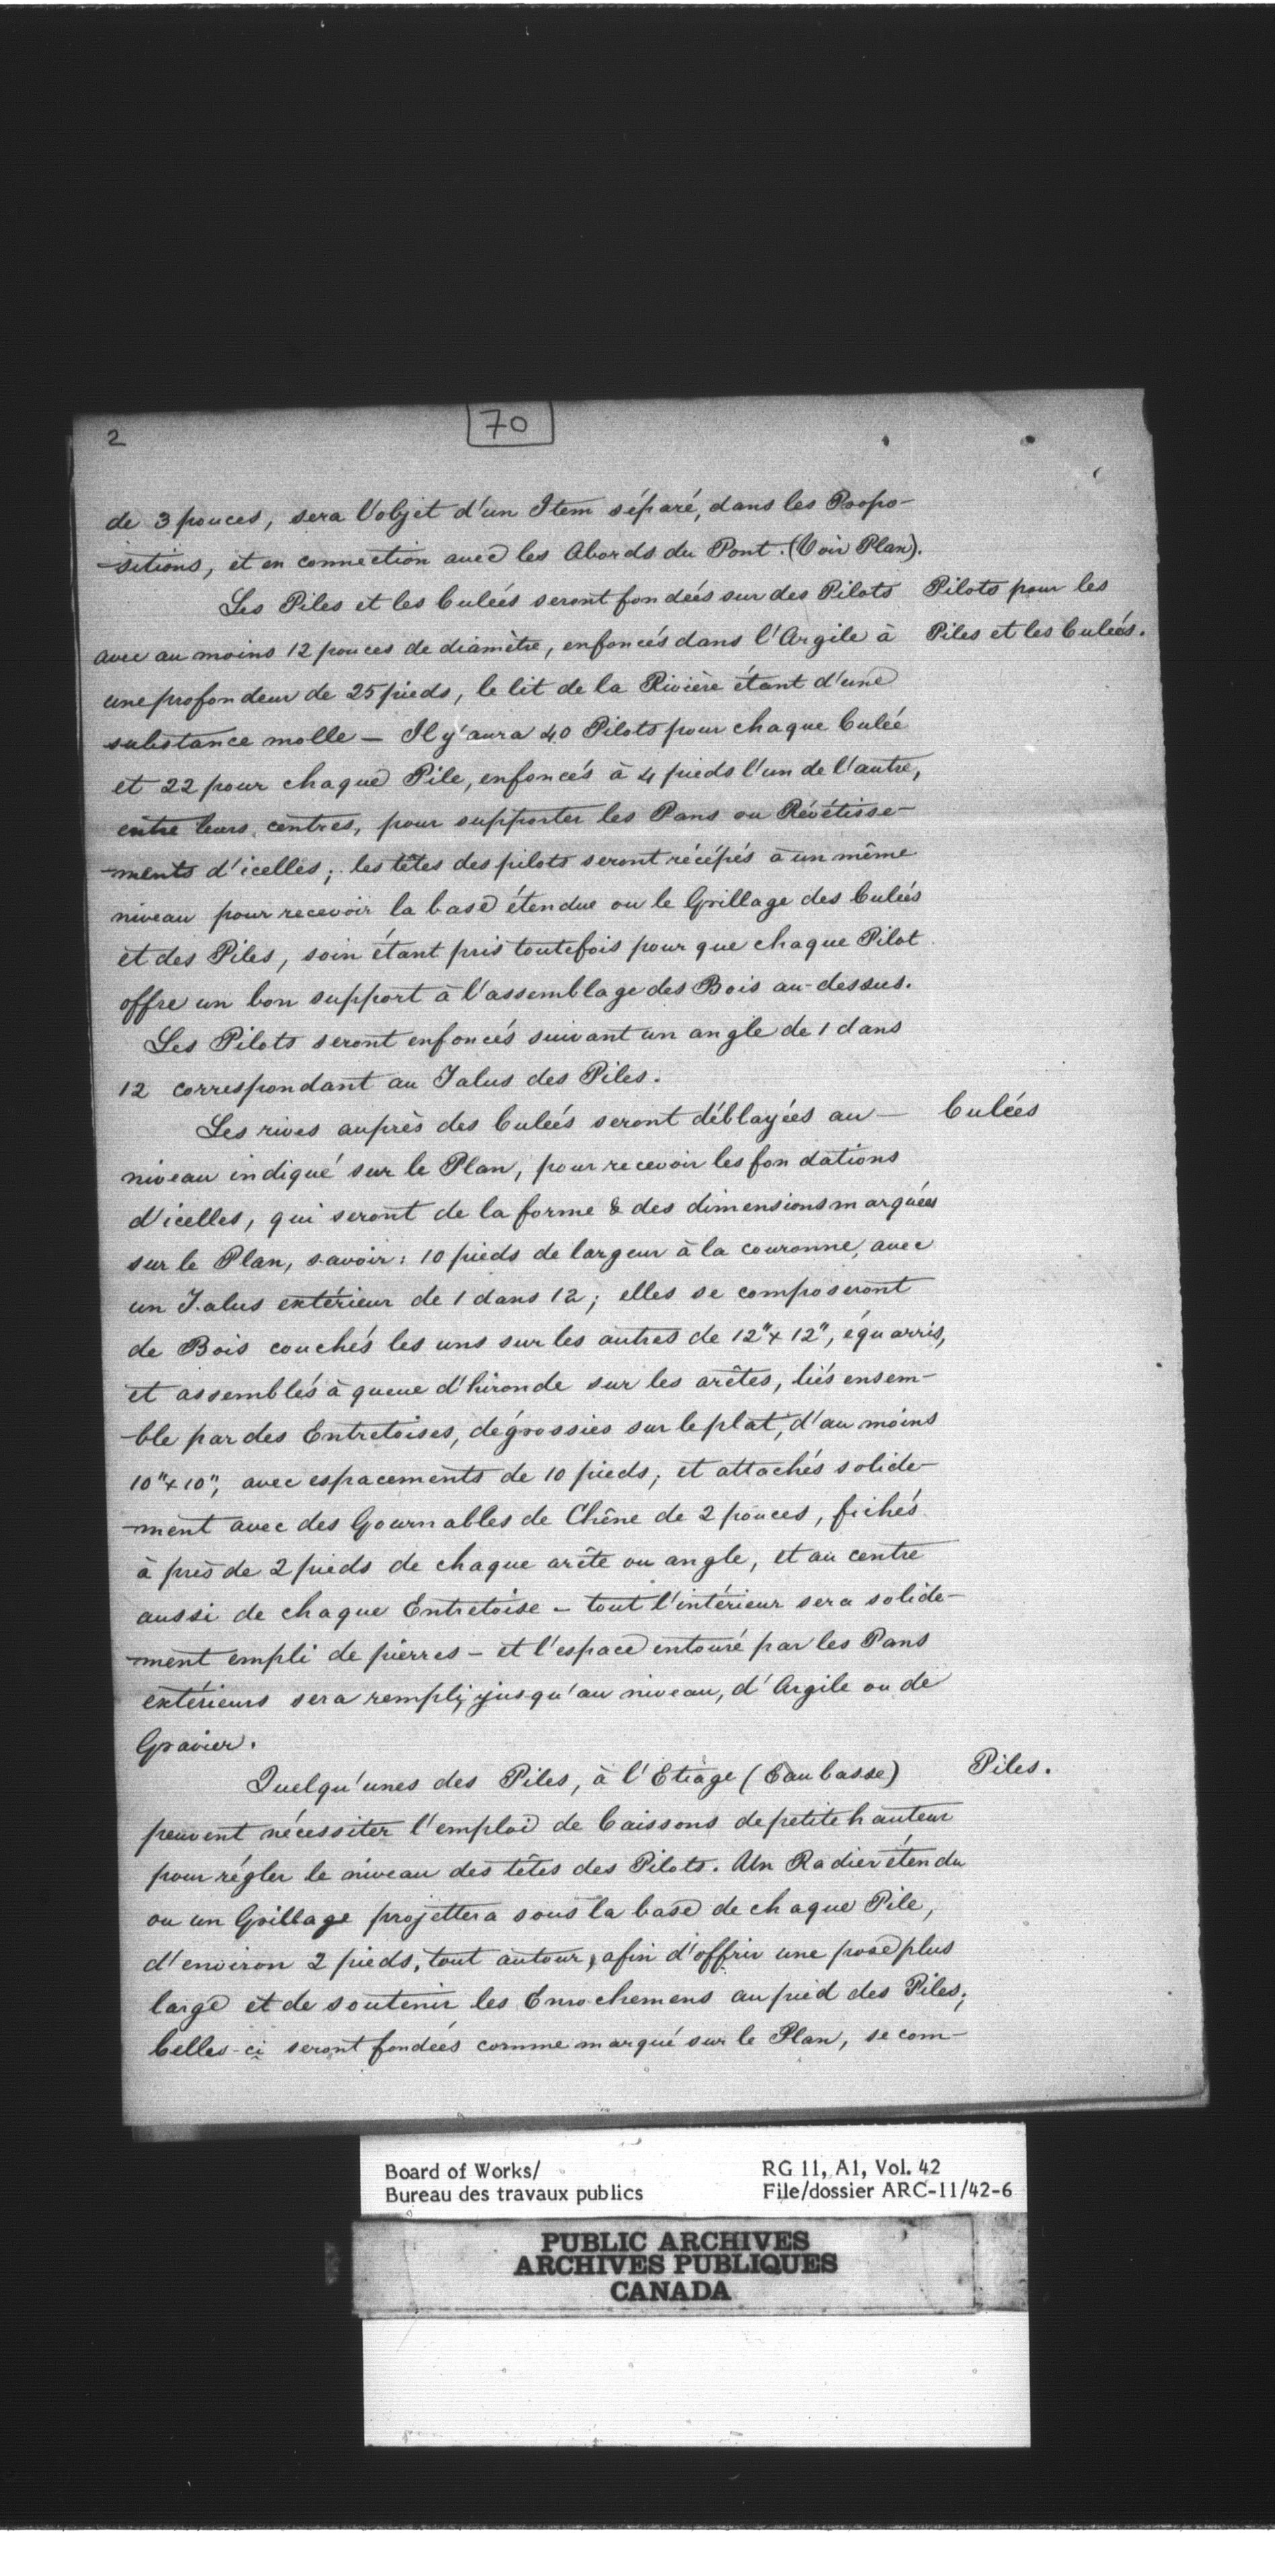 2
70
de 3 pouces, sera l'objet d'un Item séparé, dans les Propo-
-sitions, et en connection avec les Abords du Pont. (Voir Plan).
Les Piles et les Culées seront fondées sur des Pilots
Pilots pour les
avec au moins 12 pouces de diamètre, enfoncés dans l'Argile à
Piles et les Culées.
une profondeur de 25 pieds, le lit de la Rivière étant d'une
substance molle — Il y'aura 40 Pilots pour chaque Culée
et 22 pour chaque Pile, enfoncés à 4 pieds l'un de l'autre,
entre leurs centres, pour supporter les Pans ou Révétisse-
-ments d'icelles; les têtes des pilots seront récépés à un même
niveau pour recevoir la base étendue ou le Grillage des Culées
et des Piles, soin étant pris toutefois pour que chaque Pilot
offre un bon support à l'assemblage des Bois au-dessus.
Les Pilots seront enfoncés suivant un angle de 1 dans
12 correspondant au Talus des Piles.
Les rives auprès des Culées seront déblayées au —
Culées
niveau indiqué sur le Plan, pour recevoir les fondations
d'icelles, qui seront de la forme & des dimensions marquées
sur le Plan, savoir: 10 pieds de largeur à la couronne, avec
un Talus extérieur de 1 dans 12; elles se composeront
de Bois couchés les uns sur les autres de 12" x 12", équarris,
et assemblés à queue d'hironde sur les arêtes, liés ensem-
-ble par des Entretoises, dégrossies sur le plat, d'au moins
10" x 10", avec espacements de 10 pieds, et attachés solide-
-ment avec des Gournables de Chêne de 2 pouces, fichés
à près de 2 pieds de chaque arête ou angle, et au centre
aussi de chaque Entretoise - tout l'intérieur sera solide-
-ment empli de pierres - et l'espace entouré par les Pans
extérieurs sera rempli, jusqu'au niveau, d'Argile ou de
Gravier.
Quelqu'unes des Piles, à l'Etiage (Eau basse)
Piles.
peuvent nécessiter l'emploi de Caissons de petite hauteur
pour régler le niveau des têtes des Pilots. Un Radier étendu
ou un Grillage projettera sous la base de chaque Pile,
d'environ 2 pieds, tout autour, afin d'offrir une pose plus
large et de soutenir les Enrochemens au pied des Piles;
Celles-ci seront fondées comme marqué sur le Plan, se com-
Board of Works/
Bureau des travaux publics
RG 11, A1, Vol. 42
File/dossier ARC-11/42-6
PUBLIC ARCHIVES
ARCHIVES PUBLIQUES
CANADA